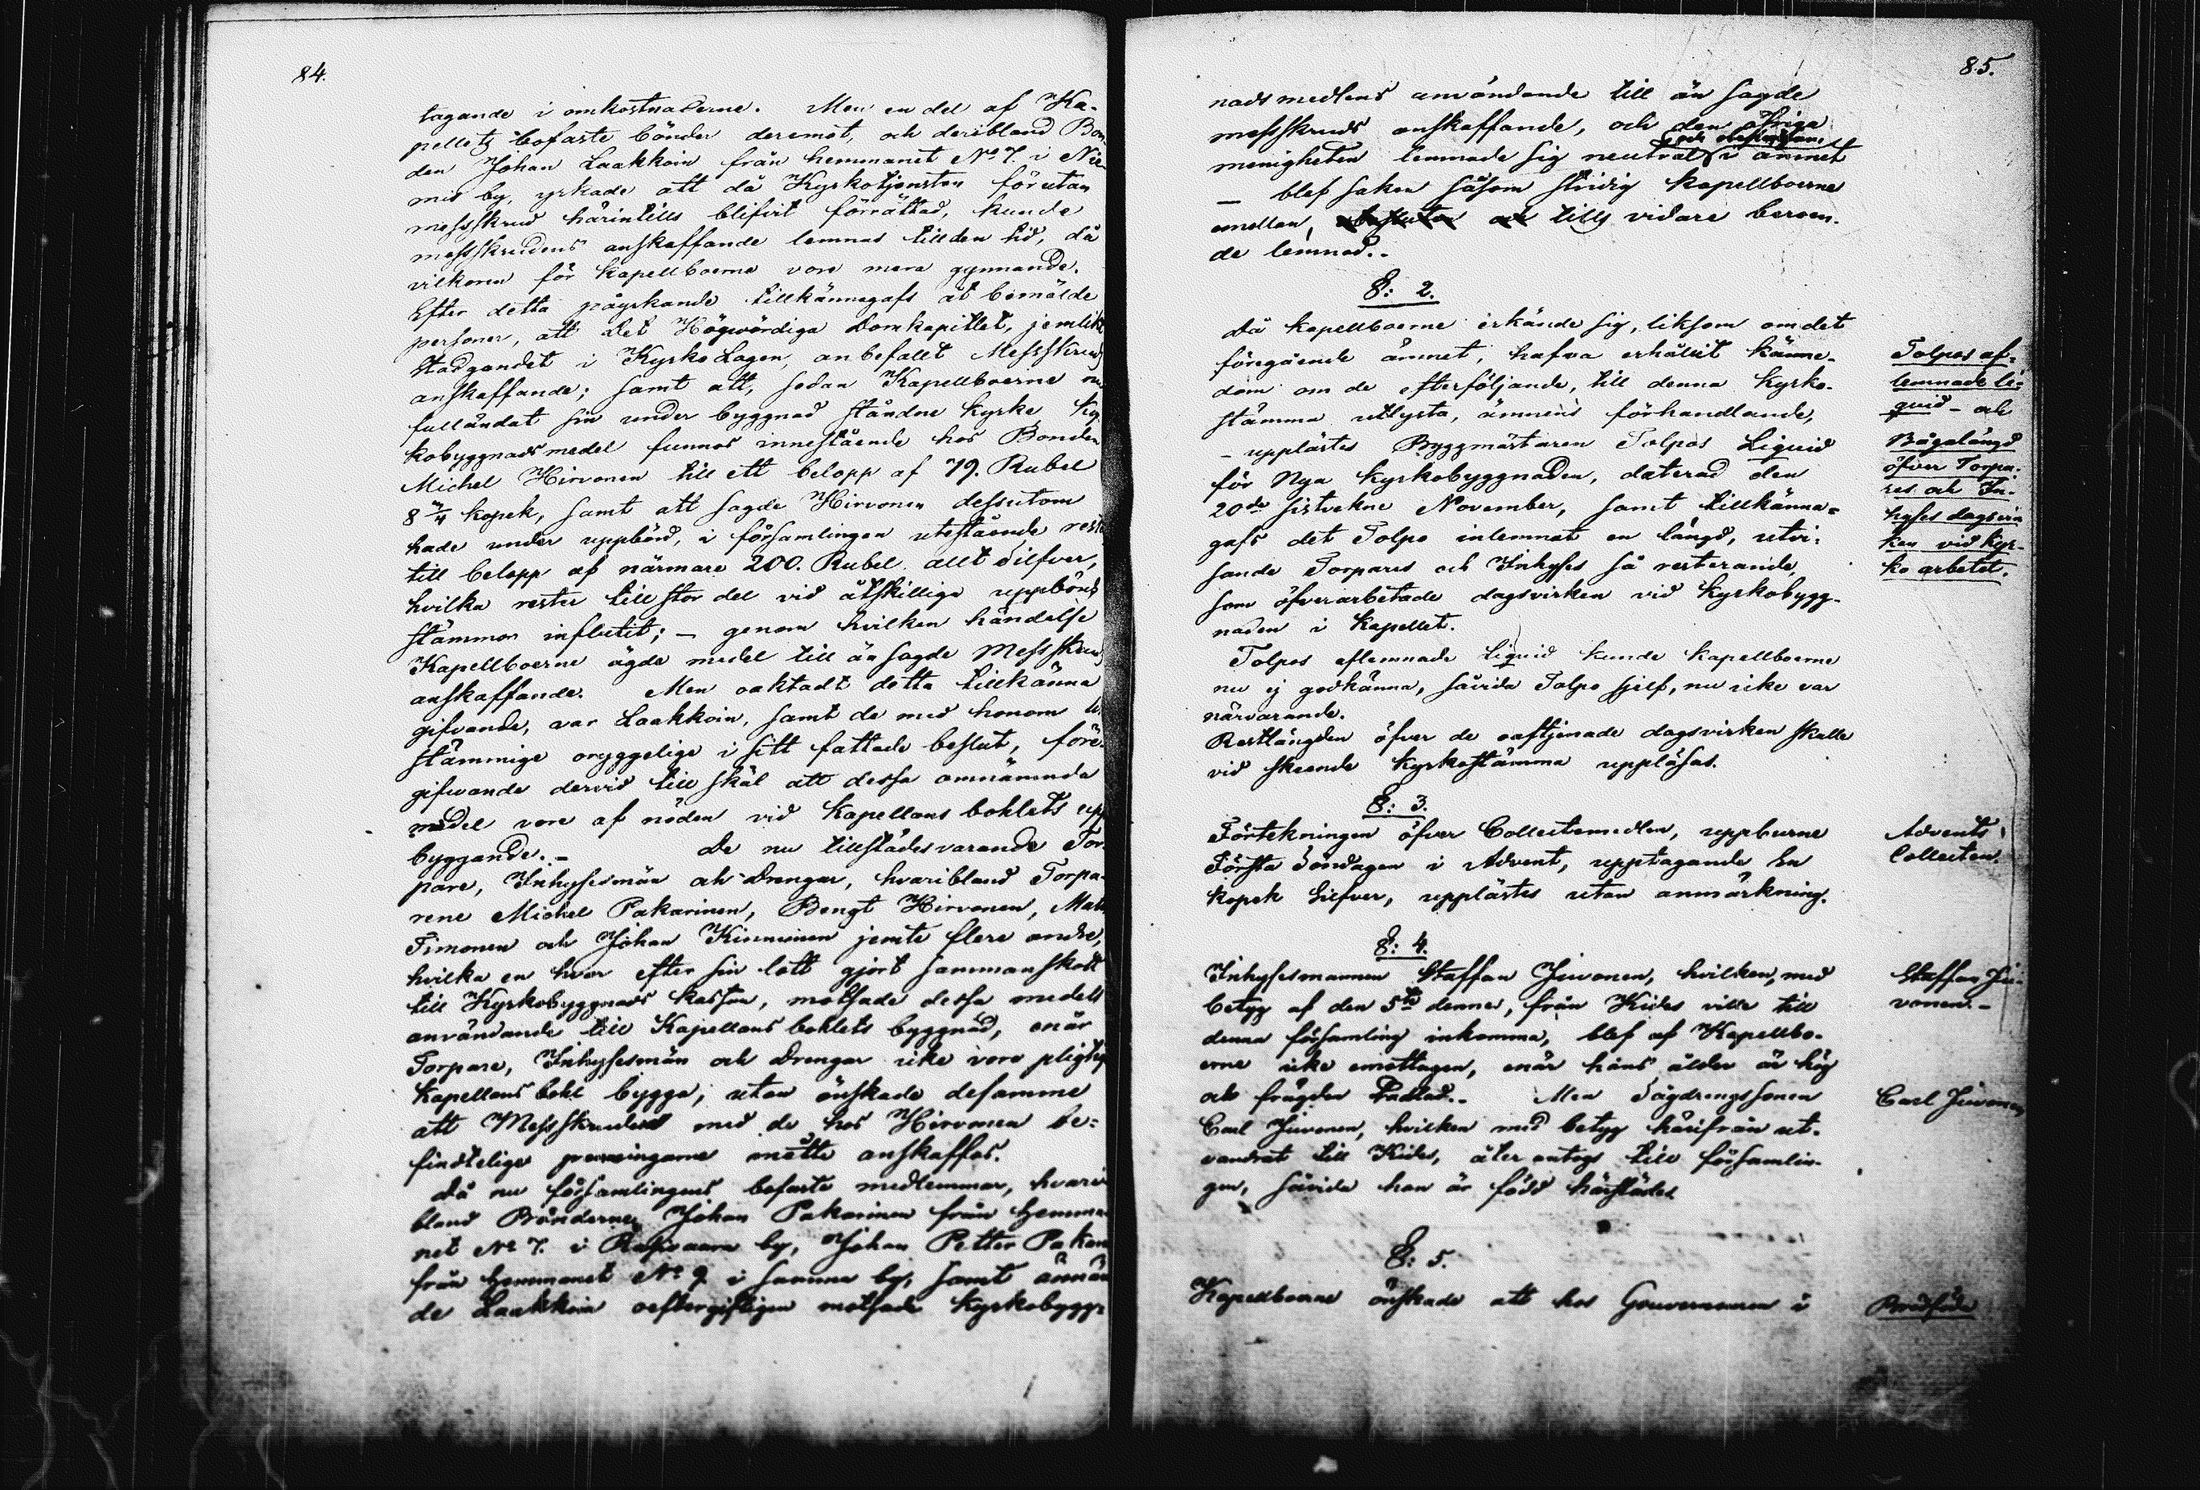 84.
tagande i omkostnaderne. Men en del af Ka-
pellets bofaste bönder deremot, och deribland Bon
den Johan Laakkoin från hemmanet No 7. i Nie
mis by, yrkade att då Kyrkotjensten förutan
messskrud härintills blifvit förrättad, kunde
messskrudens anskaffande lemnas till den tid, då
vilkoren för kapellboerne vore mera gynnande.
Efter detta påyrkande tillkännagafs åt bemälde
personer, att det Högvördiga Domkapitlet, jemlikt
stadgandet i Kyrko Lagen, anbefallt Messskruds
anskaffande; samt att, sedan Kapellboerne nu
fulländat sin under byggnad ståndne kyrka Kyr
kobyggnadsmedel funnos innestående hos Bonden
Michel Hirvonen till ett belopp af 79. Rubel
8 3/4 kopek, samt att sagde Hirvonen dessutom
hade under uppbörd, i församlingen utestående rester
till belopp af närmare 200. Rubel allt Silfver,
hvilka rester till stor del vid åtskillige uppbörds
stämmor influtit; – genom hvilken händelse
Kapellboerne ägde medel till än sagde Messskruds
anskaffande. Men oaktadt detta tillkänna
gifvande, var Laakkoin, samt de med honom
stämmige oryggelige i sitt fattade beslut, före-
gifvande dervid till skäl att dessa omnämnda
medel vore af nöden vid Kapellans bohlets upp
byggande. – De nu tillstädesvarande Tor-
pare, Inhysesmän och Drengar, hvaribland Torpa-
rene Michel Pakarinen, Bengt Hirvonen, Mats
Timonen och Johan Kinnunen jemte flere andre,
hvilka en hvar efter sin lott gjort sammanskott
till Kyrkobyggnads kassan, motsade dessa medels
användande till Kapellans bohlets byggnad, enär
Torpare, Inhysesmän och Drengar icke voro pligtige
Kapellans bohl bygga, utan önskade desamme
att Messskruden med de hos Hirvonen be-
findtelige penningarne måtte anskaffas.
Då nu församlingens bofaste medlemmar, hvari
bland Bönderne Johan Pakarinen från hemma
net No 7. i Rasivaara by, Johan Petter Pakari
från hemmanet No 9 i samma by, samt ännäm
de Laakkoin oeftergifligen motsade kyrkobygg-
85.
nadsmedlens användande till än sagde
messskruds anskaffande, och den öfriga
menigheten lemnade sig neutral i ämnet
– blef saken såsom stridig kapellboerne
emellan, och tills vidare beroen-
de lemnad. –
§: 2.
Då kapellboerne erkände sig, liksom om det
föregående ämnet, hafva erhållit känne-
dom om de efterföljande, till denna kyrko-
stämma utlysta, ämnens förhandlande,
– upplästes Byggmästaren Tolpos Liquid
för Nya kyrkobyggnaden, daterad den
20de sistvekne November, samt tillkänna-
gafs det Tolpo inlemnat en längd, utvi-
sande Torpares och Inhyses så resterande,
som öfverarbetade dagsvirken vid kyrkobygg-
naden i kapellet.
Tolpos aflemnade liquid kunde kapellboerne
nu ej godkänna, såvida Tolpo sjelf, nu icke var
närvarande.
Restlängden öfver de oaftjenade dagsvirken skulle
vid skeende kyrkostämma uppläsas.
Tolpos af-
lemnade li-
quid – och
Bågalängd
öfver Torpa-
res och In-
hyses dagsvir
ken vid kyr-
ko arbetet.
§: 3.
Förtekningen öfver Collectemedlen, uppburne
Första Söndagen i Advent, upptagande En
kopek Silfver, upplästes utan anmärkning.
Advents
Collecten.
§: 4.
Inhysesmannen Staffan Juvonen, hvilken, med
betyg af den 5te dennes, från Kides ville till
denna församling inkomma, blef af Kapellbo-
erne icke emottagen, enär hans ålder är hög
och frägden tadlad. – Men Sågdrengssonen
Carl Juvonen, hvilken med betyg härifrån ut-
vandrat till Kides, åter antogs till församlin-
gen, såvida han är född härstädes
Staffan Ju-
vonen. –
Carl Juvonen
§: 5.
Kapellboerne önskade att hos Gouverneuren i
Brödföda